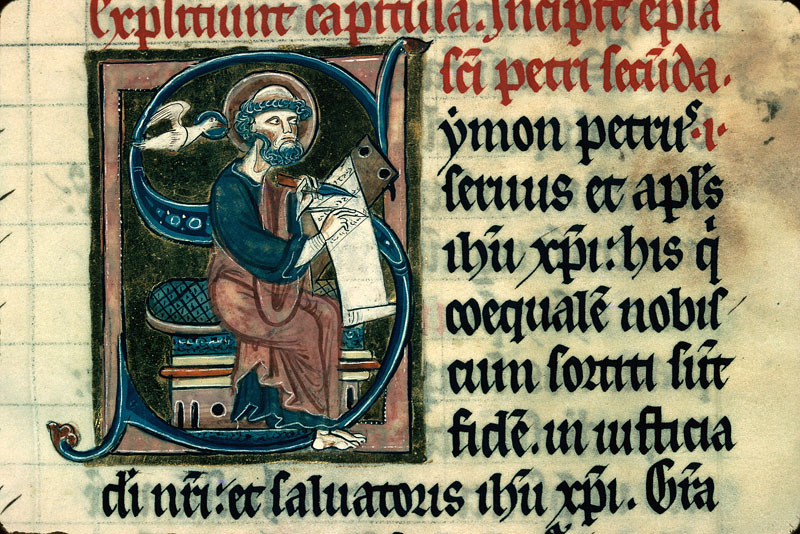 Explitiunt capitula. Incipit ep̃la
sc̃i petri secũda.
ẏmon petrus .i.
seruus et apl̃s
ihũ xp̃i: his q̇
coequalẽ nobis
cum sortiti sũt
fidẽ. in iusticia
dĩ nr̃i: et saluatoris ihũ xp̃i. Gr̃a